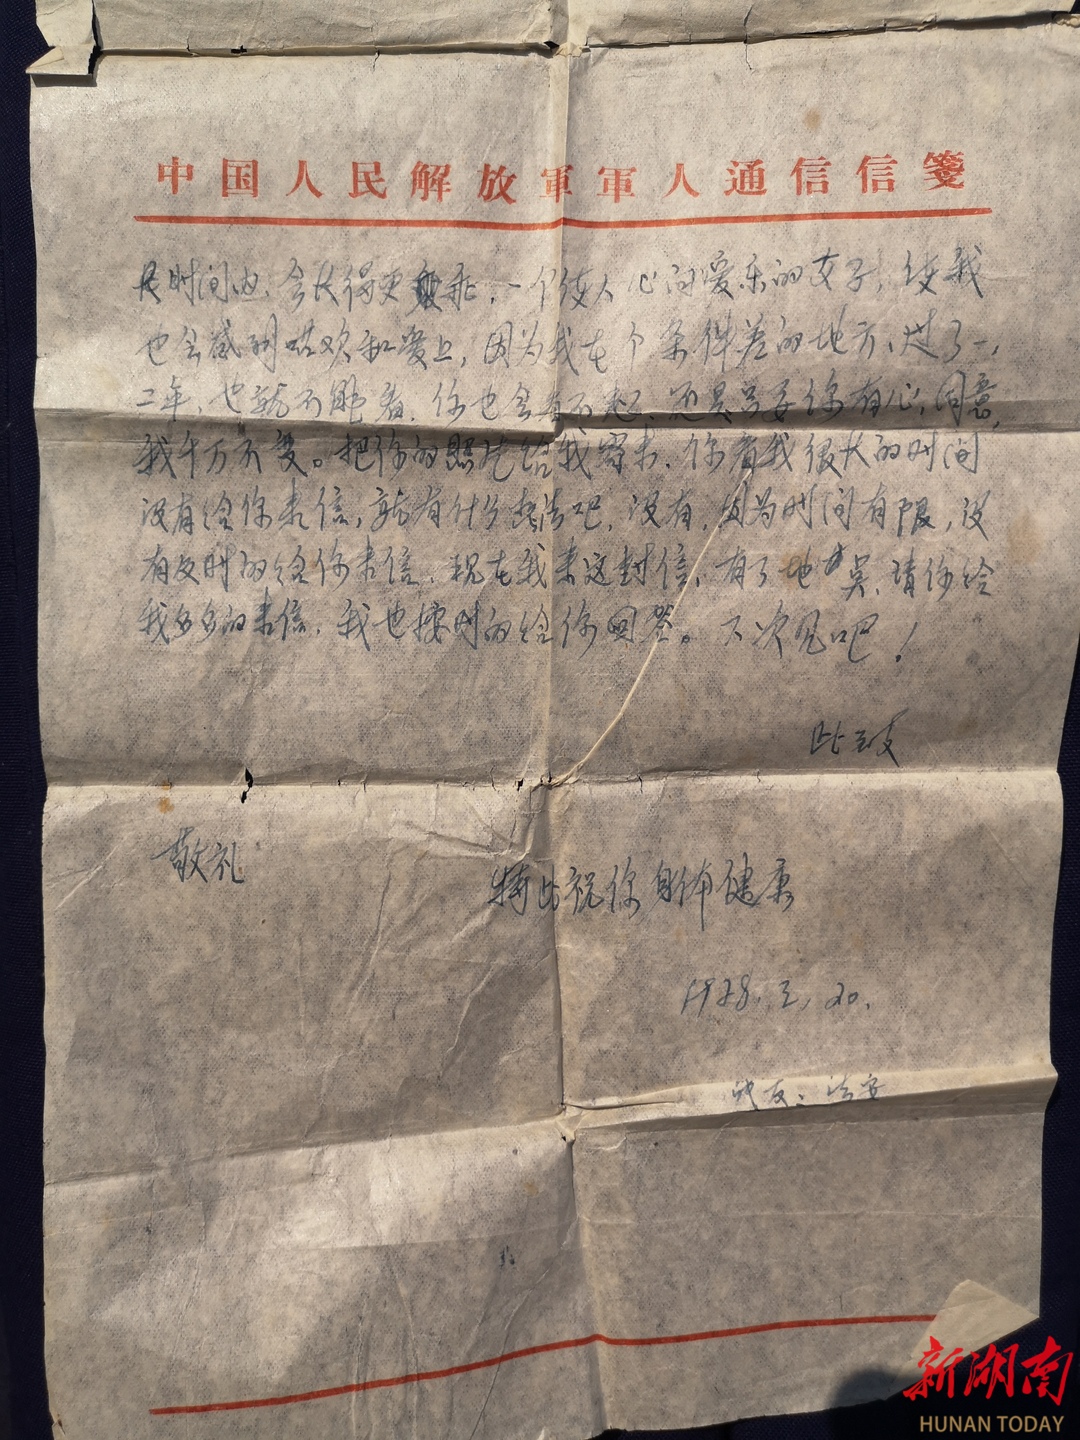 中国人民解放軍軍人通信信箋
时间内,会长得更乖,一个使人心问爱乐的女子,使我
也会感到喜欢和爱上,因为我在个条件差的地方,过了一,
二年,也就不能看,你也会看不起,还是只要你有心,同意,
我千万不变。把你的照片给我寄来,你看我很长的时间
没有给你来信,就有什么想法吧,没有,因为时间有限,没
有及时的给你来信,现在我来这封信,有了地点,请你给
我多多的来信,我也按时的给你回答。下次见吧!
此致
敬礼
特此祝你身体健康
1978.3.20.
战友:
新湖南
HUNAN TODAY